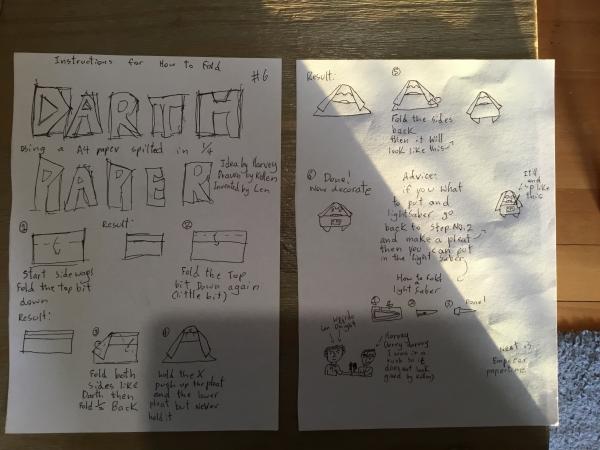 Instructions for How to Fold
#6
DARTH
Using a A4 paper spilted in 1/4
PAPER
Idea by Harvey
Drawn by Kalen
Invented by Len
①
Result:
②
Start sideways
Fold the top bit
down
Fold the Top
bit Down again
(little bit)
Result:
③
④
Fold both
sides like
Darth then
Fold 1/2 Back
hold the X
push up the pleat
and the lower
pleat but Never
hold it
Result:
⑤
Fold the sides
back
then it will
look like this
⑥ Done!
Now decorate
Advice:
if you What
to put and
lightsaber go
back to step NO.2
and make a pleat
then you can put
in the light saber
It'll
end
up like
this
How to Fold
a
light Saber
① ② ③ Done!
Len
Harvey
I was in a
rush so it
does not look
good by Kalen)
Next is
Emperor